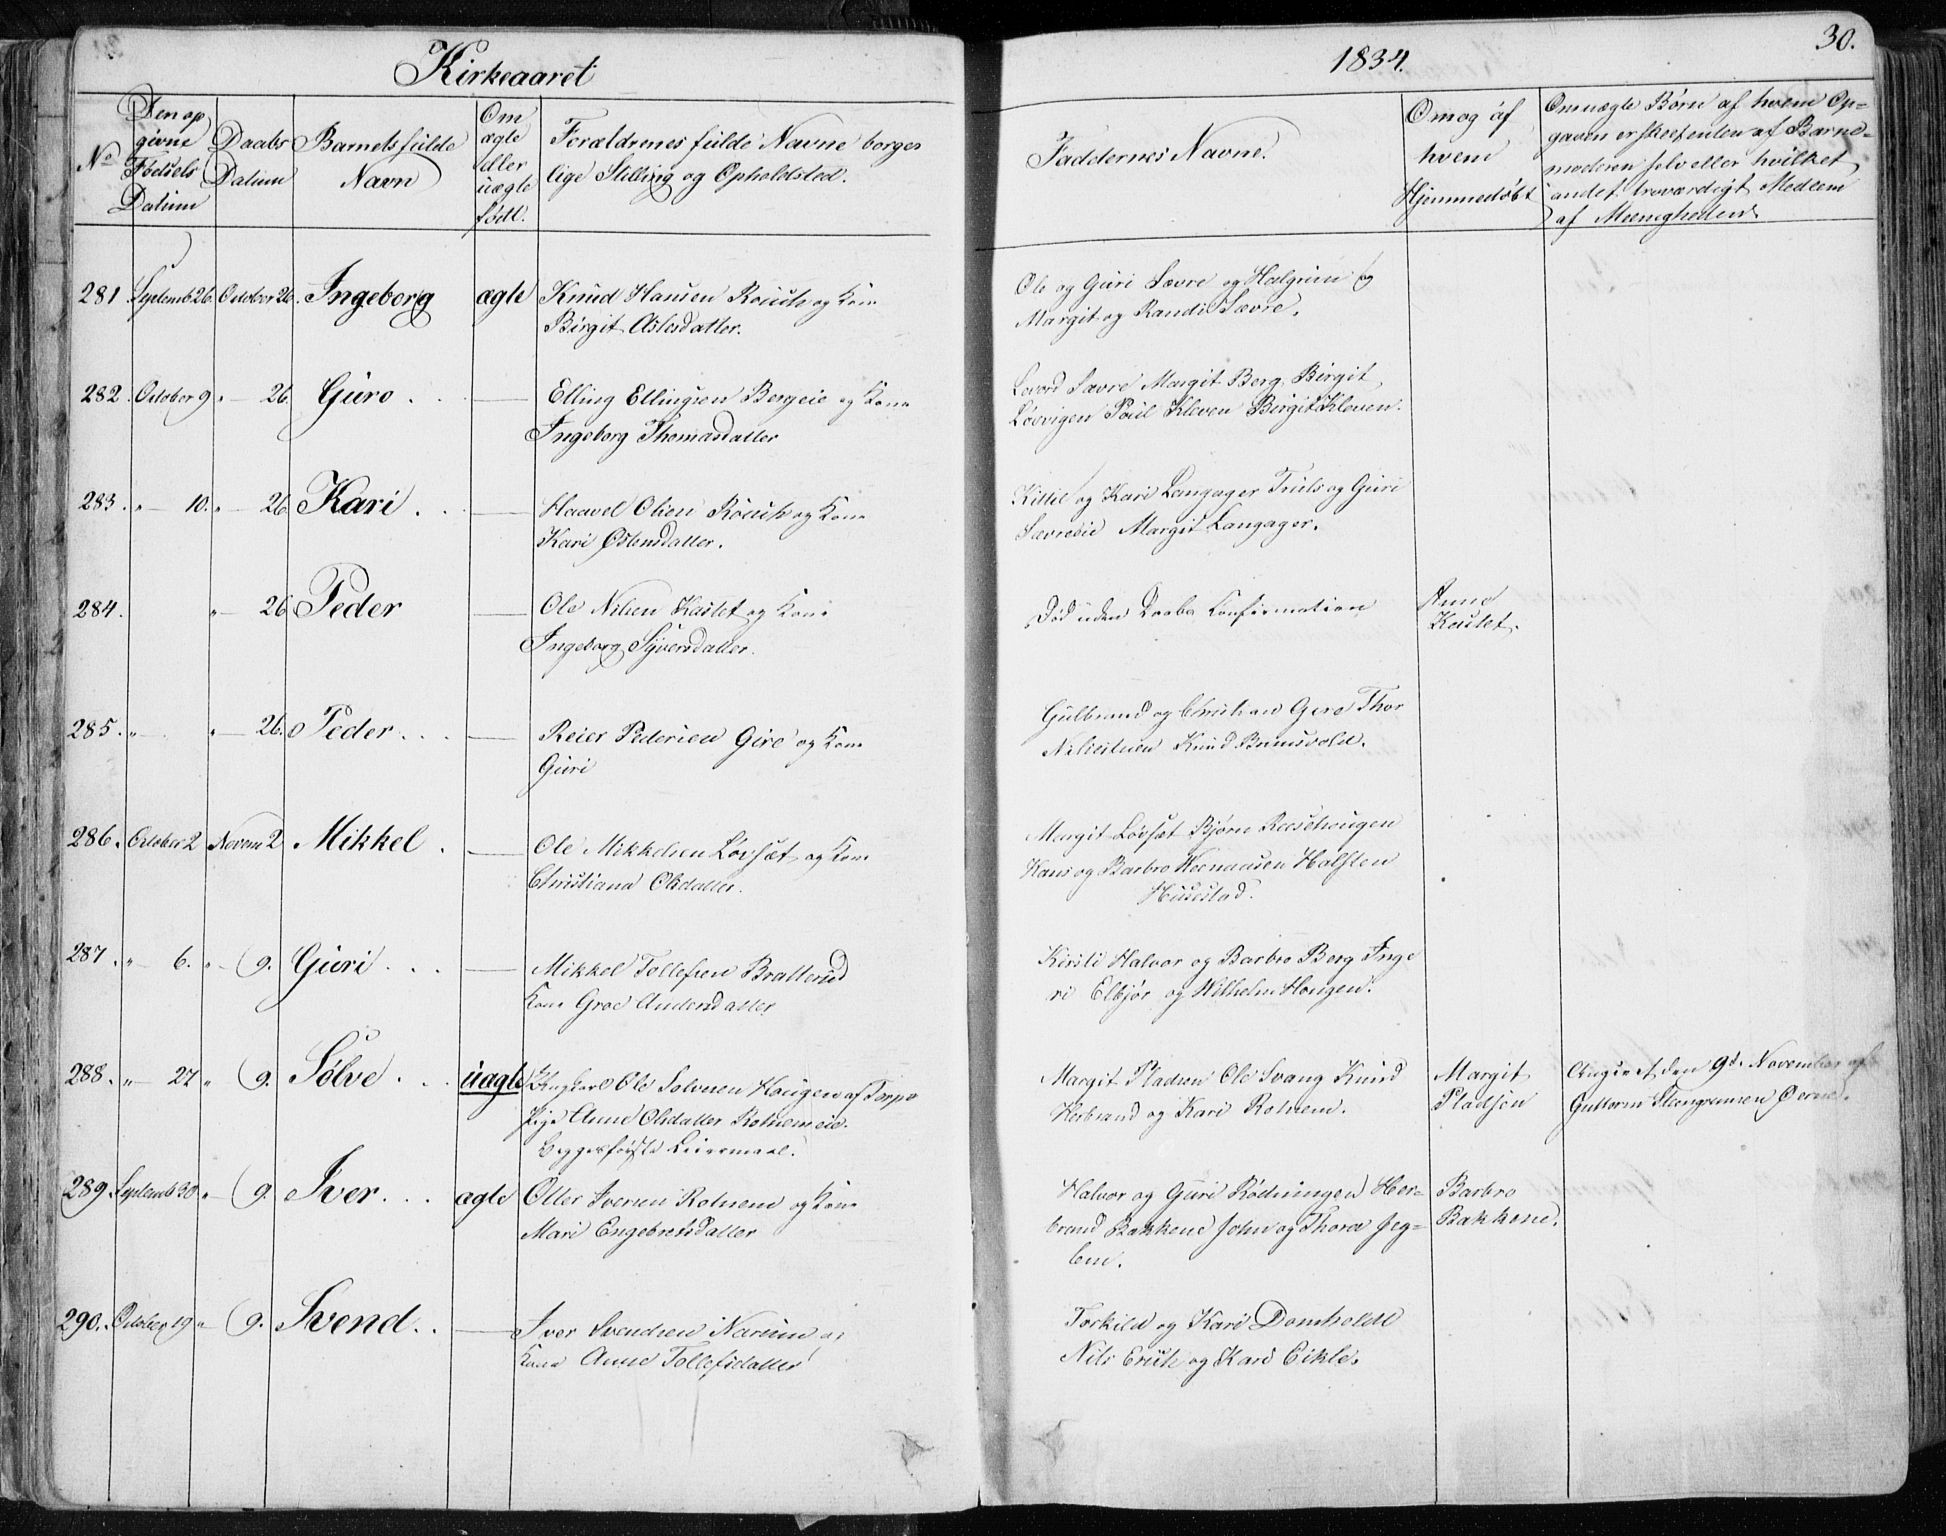 Kirkeaaret
1834.
30.
No
Den op
givne
Fødsels
Datum
Daabs
Datum
Barnets fulde
Navn
Om
ægte
eller
uægte
født.
Forældrenes fulde Navne borger
lige Stilling og Opholdsted.
Faddernes Navne.
Om og af
hvem
Hjemmedøbt
Om uægte Børn af hvem Op-
gaven er skeet enten af Barne-
moderen selv eller hvilket
andet troværdigt Medlem
af Menigheden
281 Septemb 26. October 26. Ingeborg ægte Knud Hansen og Kone
Birgit Aslesdatter.
Ole og Guri Sævre og Halgrim og
Margit og Randi Sævre.
282. October 9 " 26. Guro . . — Elling Ellingsen Bergeie og Kone
Ingeborg Thomasdatter
Levord Sævre Margit Berg Birgit
Løvigen Poul Kleven Birgit Kleven.
283. " — 10. " — 26. Kari . . — Haavel Olsen og Kone
Kari Østensdatter.
Kittil og Kari Langager Truls og Guri
Sævreeie Margit Langager.
284. " — 26 Peder — Ole Nilsen Kaslet og Kone
Ingeborg Syversdatter.
Død uden Daabs Confirmation
Anne
Kaslet.
285. " " — 26. Peder . . . — Reier Pedersen Gire og Kone
Guri
Gulbrand og Christian Gire Thor
Nilsestuen Knud Brunsvold.
286. October 2 Novem 2 Mikkel . — Ole Mikkelsen Løvset og Kone
Christiana Olsdatter.
Margit Løvset Bjørn Reesehougen
Hans og Barbro Halsten
Husestad.
287. " — 6. " — 9. Guri . . . — Mikkel Tollefsen Bratterud
Kone Groe Andersdatter
Kirsti Halvor og Barbro Berg Inge
ri Elbjør og Wilhelm Hougen.
288. " — 27 " 9. Sølve . . . uægte Ungkarl Ole Solvesen Hougen af Torpe
Pige Anne Olsdatter Rotnemeie.
Begges første Leiermaal.
Margit Pladsen Ole Svang Knud
Herbrand og Kari Rotnem.
Margit
Pladsen
Angivet den 9d November af
Guttorm
289. Septemb 30. " — 9. Iver . . . ægte Oller Iversen Rotnem og Kone
Mari Engebretsdatter
Halvor og Guri Rødningen Her-
brand Bakkene John og Thora Jeg-
lem.
Barbro
Bakkene.
290. October 19 " 9. Svend . . — Iver Svendsen Narum og
Kone Anne Tollefsdatter
Torkild og Kari Domholdt
Nils og Kari Eikle.